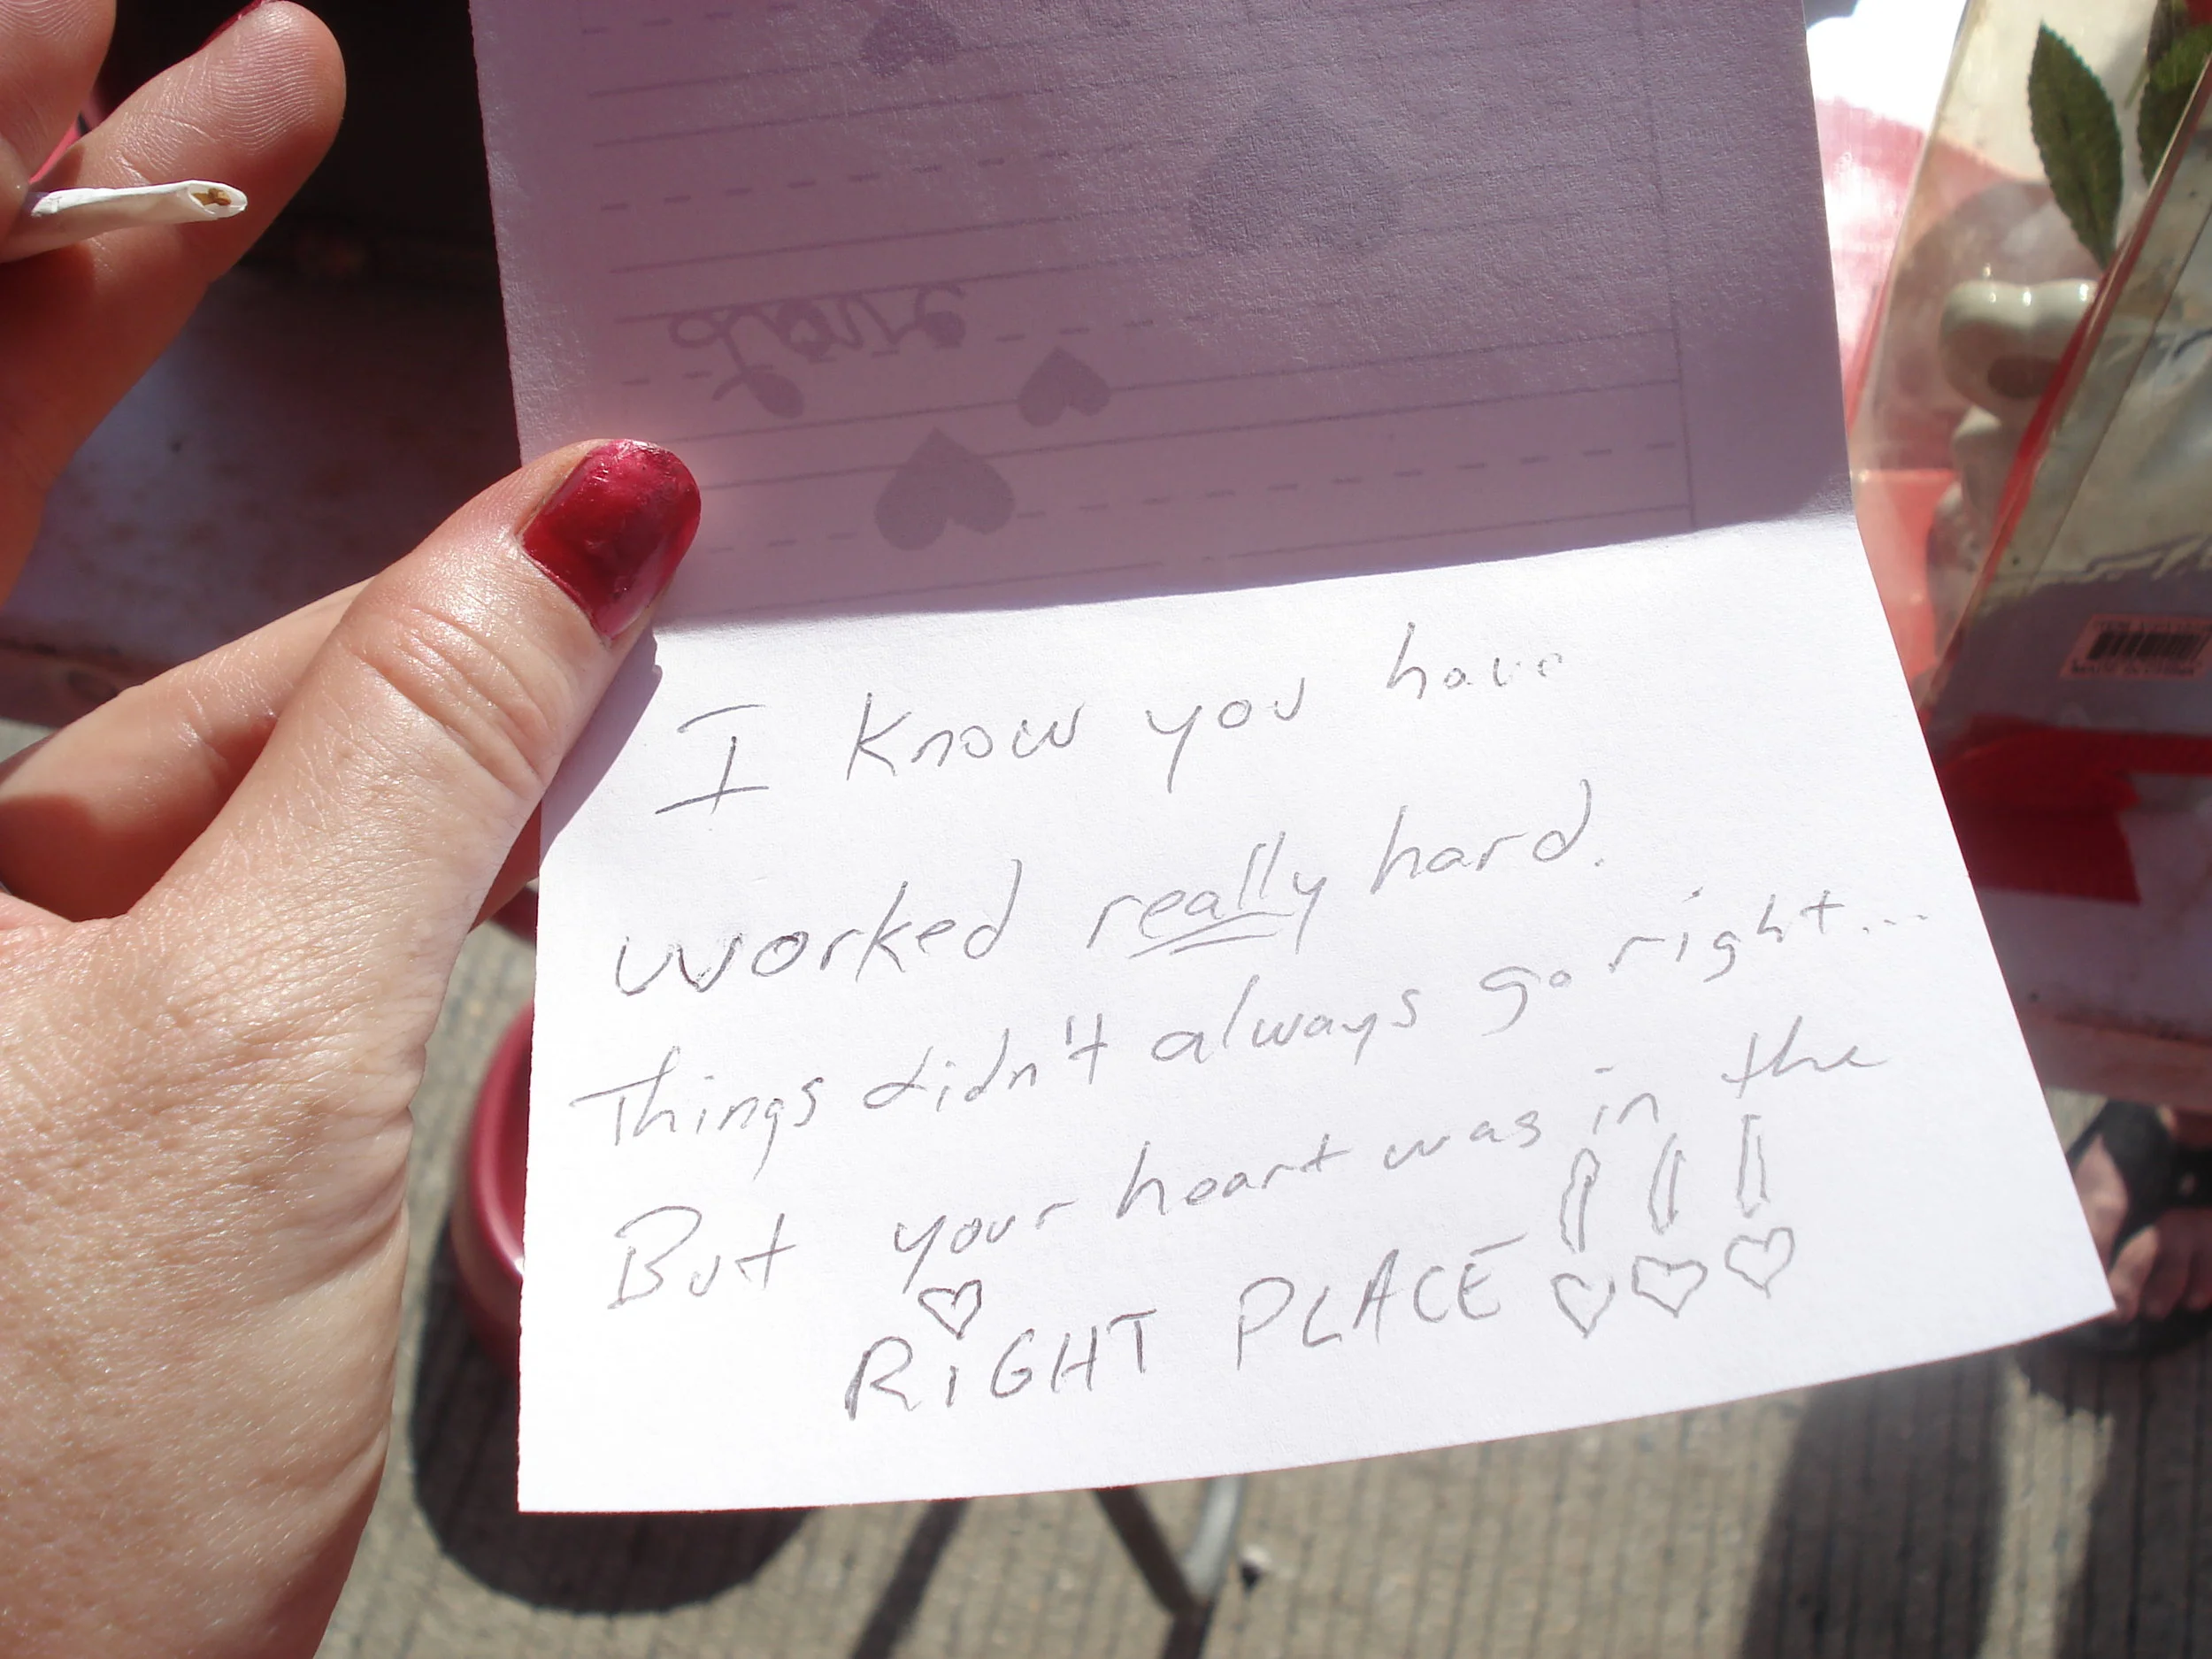 love
I know you have
worked really hard.
Things didn't always go right...
But your heart was in the
RiGHT PLACE !!!